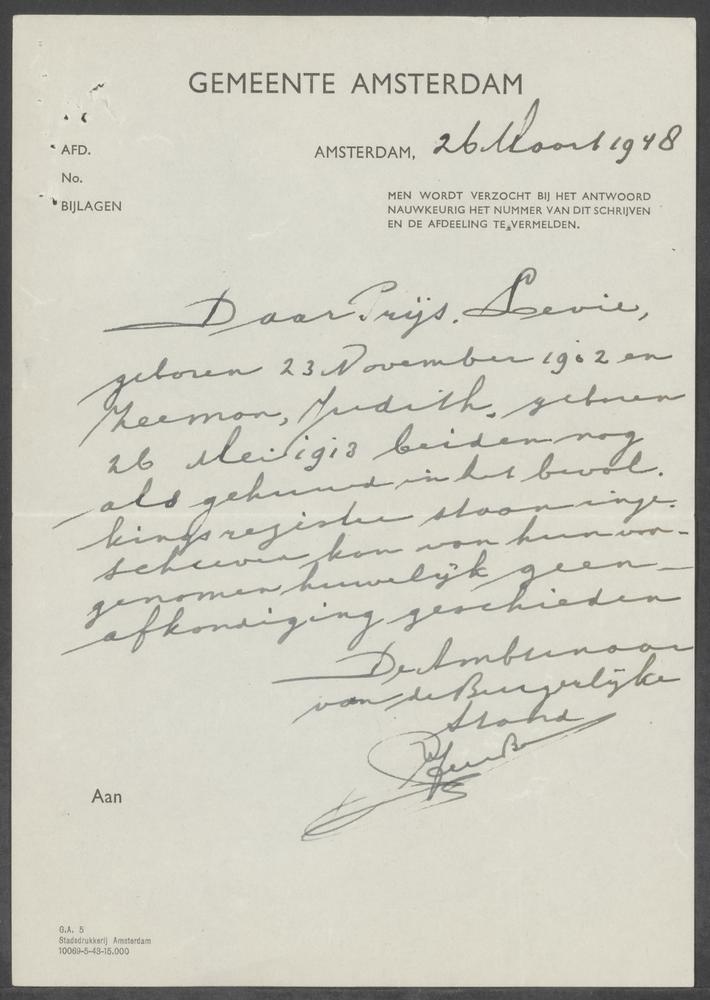 GEMEENTE AMSTERDAM
AFD.
No.
BIJLAGEN
AMSTERDAM, 26 Maart 1948
MEN WORDT VERZOCHT BIJ HET ANTWOORD
NAUWKEURIG HET NUMMER VAN DIT SCHRIJVEN
EN DE AFDEELING TE VERMELDEN.
Daar Prijs, Levie,
geboren 23 November 1902 en
Zeeman, Judith, geboren
26 Mei 1913 beiden nog
als gehuwd in het bevol-
kingsregister staan inge-
schreven kan van hun voor-
genomen huwelijk geen
afkondiging geschieden
De Ambtenaar
van de Burgerlijke
Stand
Aan
G.A. 5
Stadsdrukkerij Amsterdam
10069-5-43-15.000